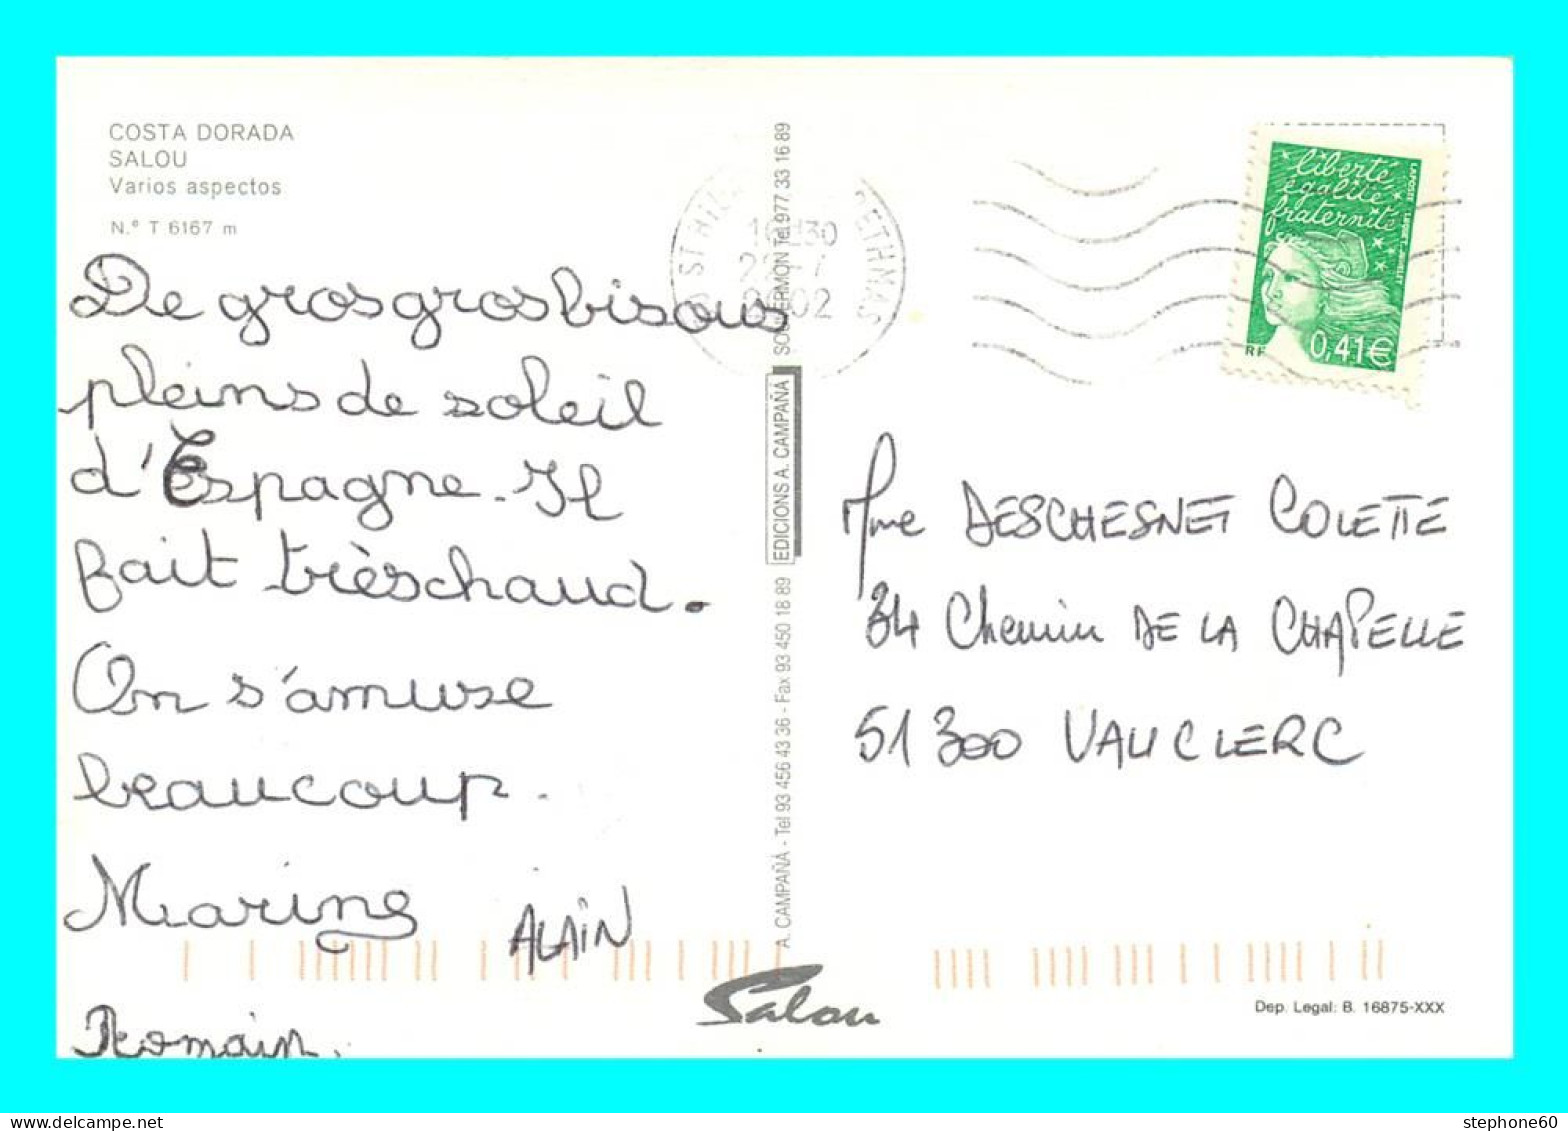 COSTA DORADA
SALOU
Varios aspectos
N.º T 6167 m
De gros gros bisous
pleins de soleil
d'Espagne. Il
fait très chaud.
On s'amuse
beaucoup.
Marine
ALAiN
Romain.
A. CAMPAÑÀ - Tel 93 456 43 36 - Fax 93 450 18 89
EDICIONS A. CAMPAÑÀ
SOBTERMON Tel 977 33 16 89
ST HIL
BETHMAS
30
2002
liberté
égalité
fraternité
RF
0,41€
Mme DESCHESNET COLETTE
34 Chemin DE LA CHAPELLE
51300 VAUCLERC
Salou
Dep. Legal: B. 16875-XXX
stephone60